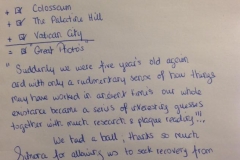 + ☑ Colosseum
+ ☑ The Palatine Hill
+ ☑ Vatican City
+ ☑ Great Photos
"Suddenly we were five year's old again
and with only a rudimentary sense of how things
may have worked in ancient times our whole
existence became a series of guesses
together with much research & plague reading!!!
We had a ball, thanks so much
for allowing us to seek recovery from